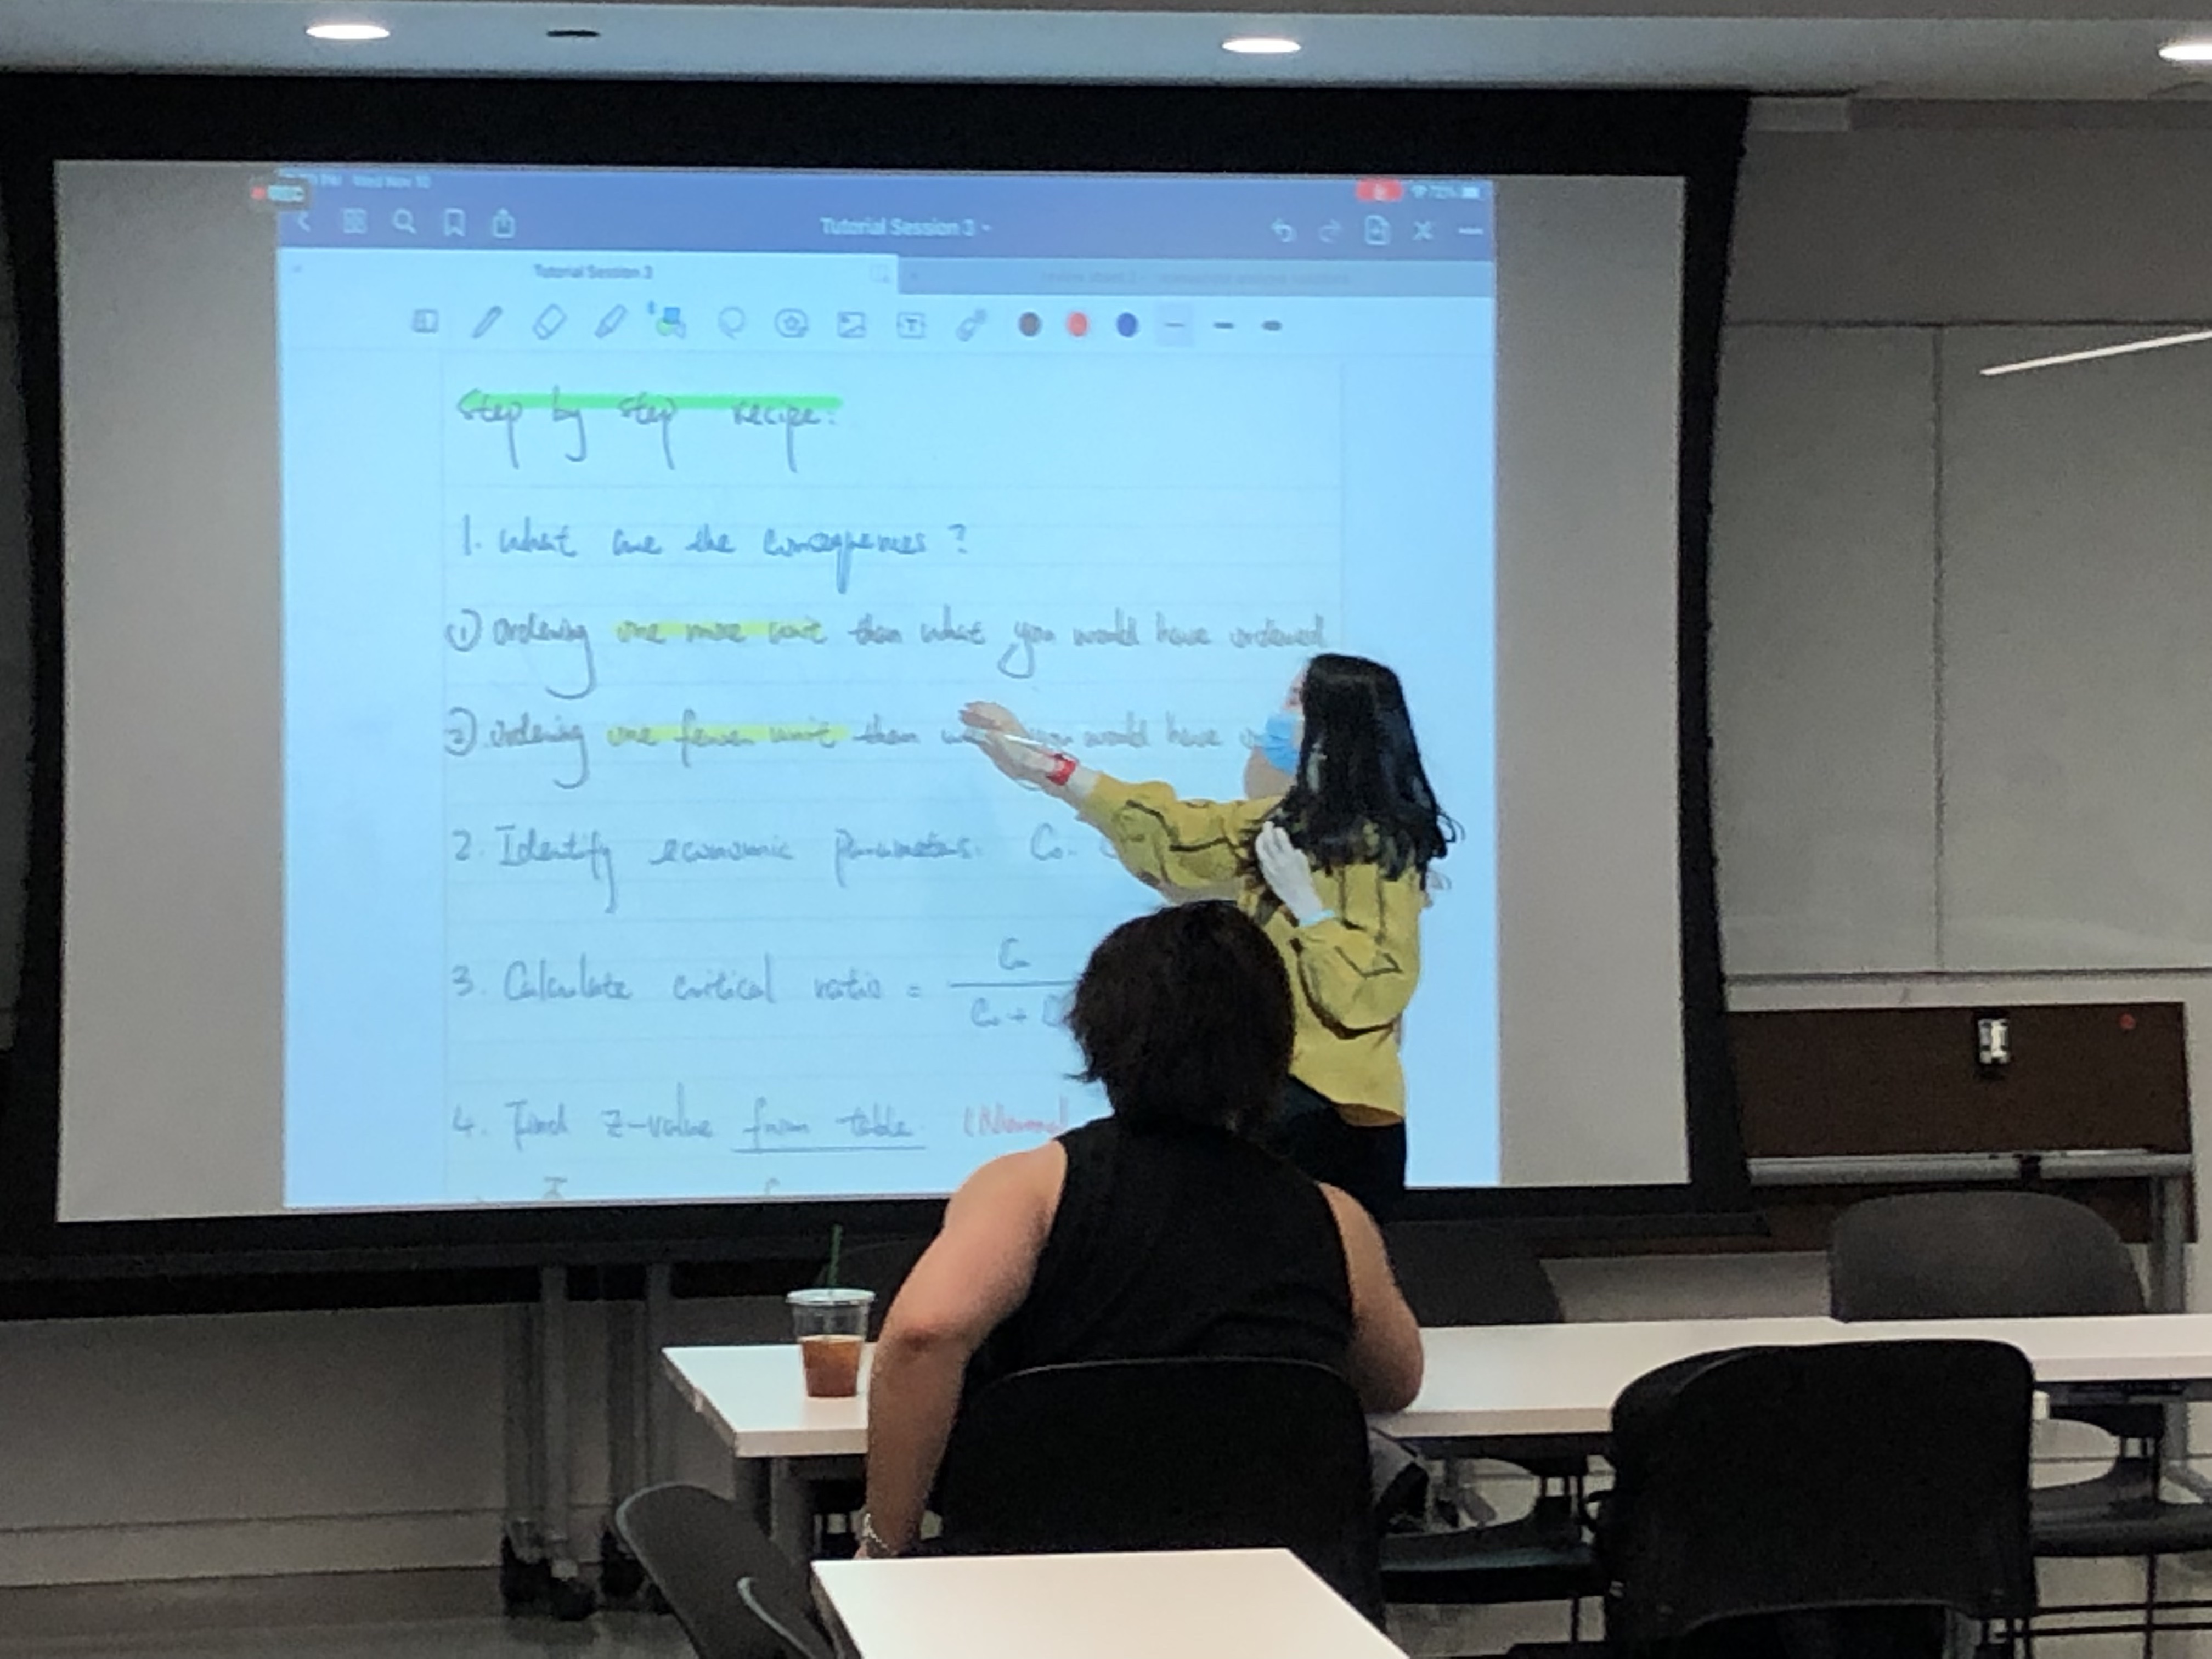 REC
Wed Nov 10
72%
Tutorial Session 3
Tutorial Session 3
Step by step recipe:
1. What are the consequences?
① ordering one more unit than what you would have ordered
② ordering one fewer unit than you would have
2. Identify economic parameters. Co.
3. Calculate critical ratio = Cu
Co +
4. Find z-value from table. (Normal